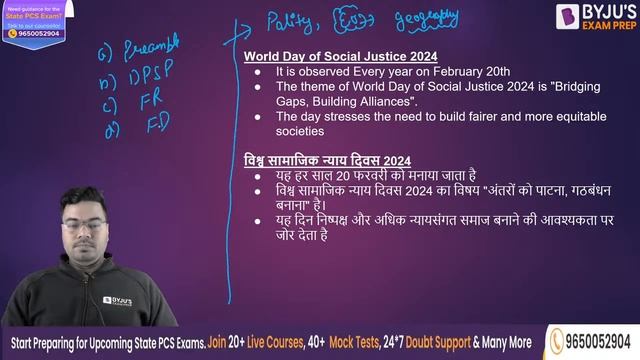 Need guidance for the
State PCS Exam?
Talk to our counsellor
9650052904
Polity, geography
BYJU'S
EXAM PREP
a) Preamble
b) DPSP
c) FR
d) F.D
World Day of Social Justice 2024
● It is observed Every year on February 20th
● The theme of World Day of Social Justice 2024 is "Bridging
Gaps, Building Alliances".
● The day stresses the need to build fairer and more equitable
societies
विश्व सामाजिक न्याय दिवस 2024
● यह हर साल 20 फरवरी को मनाया जाता है
● विश्व सामाजिक न्याय दिवस 2024 का विषय "अंतरों को पाटना, गठबंधन
बनाना" है।
● यह दिन निष्पक्ष और अधिक न्यायसंगत समाज बनाने की आवश्यकता पर
जोर देता है
BYJU'S
Start Preparing for Upcoming State PCS Exams. Join 20+ Live Courses, 40+ Mock Tests, 24*7 Doubt Support & Many More 9650052904